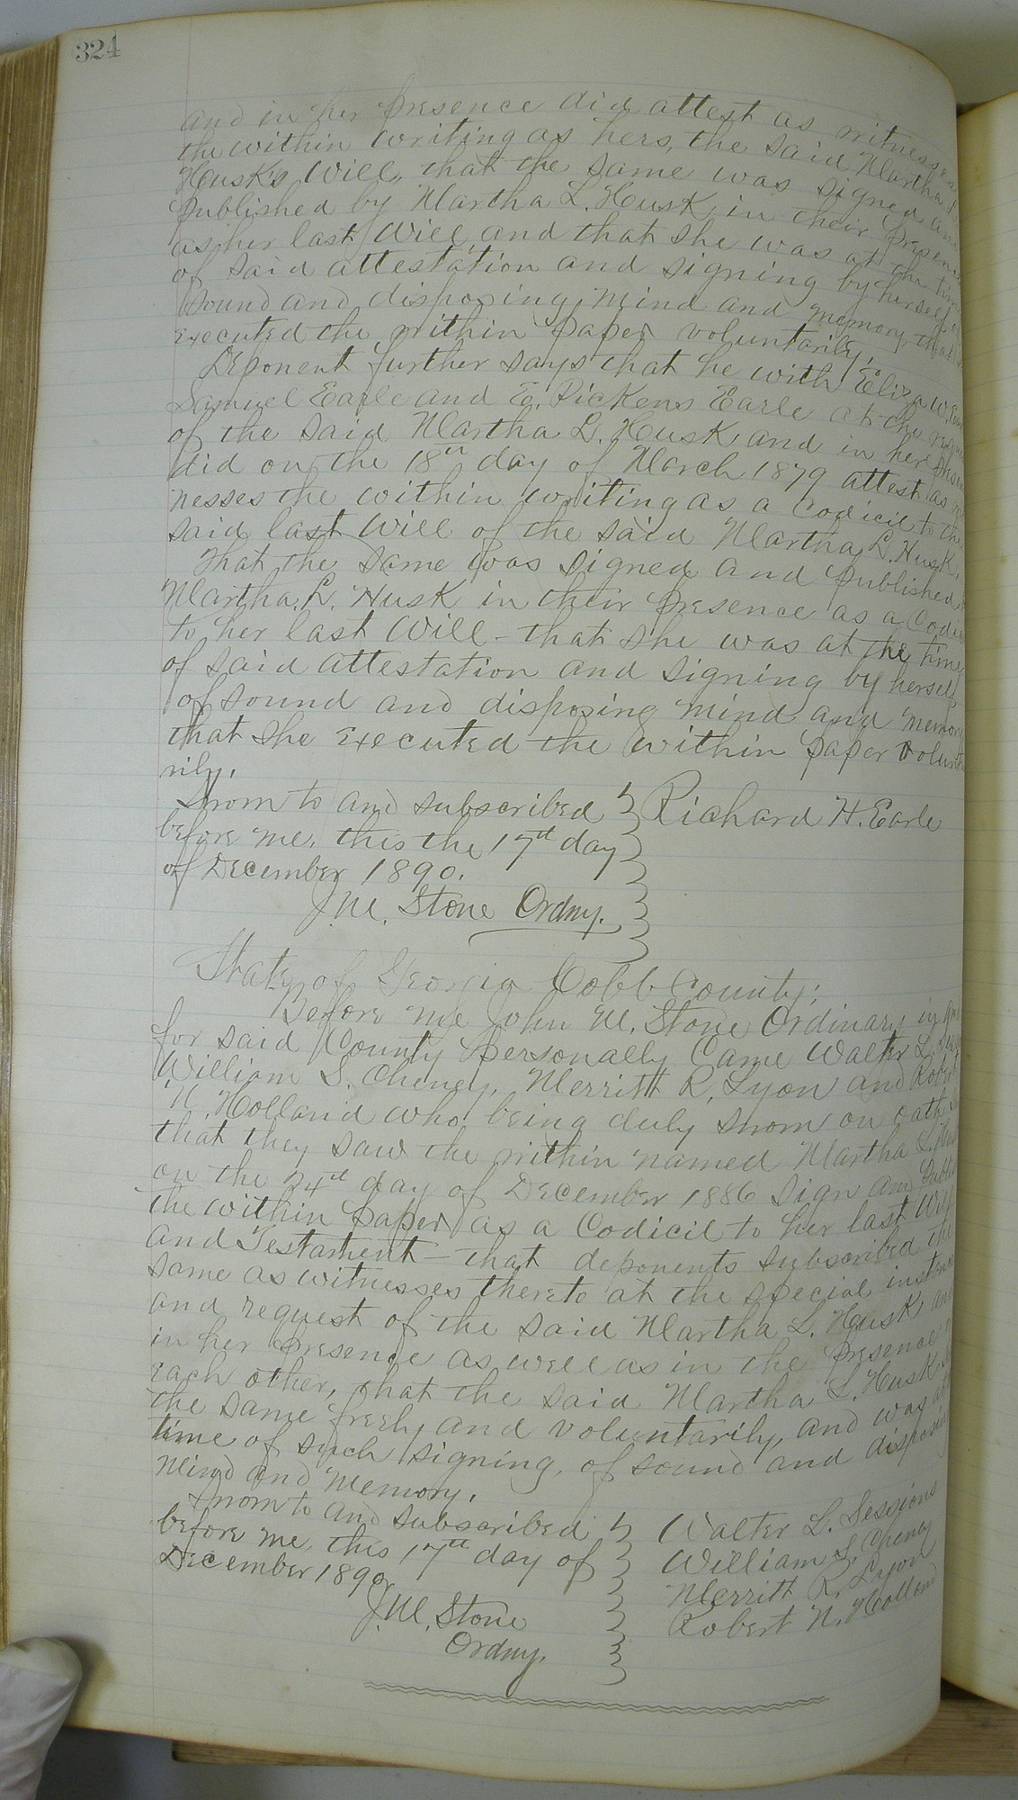 324
and in her presence did attest as witnesses
the within writing as hers, the said Martha L.
Husk's Will, that the same was signed and
published by Martha L. Husk in their presence
as her last Will and that she was at the time
of said attestation and signing by herself of
sound and disposing mind and memory that
executed the within paper voluntarily.
Deponent further says that he with Eliza W. Earle
Samuel Earle and E. Pickens Earle at the request
of the said Martha L. Husk and in her presence
did on the 18th day of March 1879 attest as
nesses the within writing as a Codicil to the
said last Will of the said Martha L. Husk.
That the same was signed and published
Martha L. Husk in their presence as a Codi
to her last Will - that she was at the time
of said attestation and signing by herself
of sound and disposing mind and memory
that she executed the within paper volunta
rily.
Sworn to and subscribed
before me, this the 17th day
of December 1890.
J. M. Stone Ordny.
Richard H. Earle
State of Georgia Cobb County:
Before me John M. Stone Ordinary in
for said County personally Came Walter L.
William S. Cheney, Merritt R. Lyon and Robert
N. Holland who being duly sworn on oath
that they saw the within named Martha L.
on the 24th day of December 1886 sign and
the within paper as a Codicil to her last Will
and Testament - that deponents subscribed the
same as witnesses thereto at the special instance
and request of the said Martha L. Husk and
in her presence as well as in the presence
each other, that the said Martha L. Husk
the same freely and voluntarily, and was at
time of such signing, of sound and disposing
mind and memory.
Sworn to and subscribed
before me, this 17th day of
December 1890
J. M. Stone
Ordny.
Walter L. Sessions
William S. Cheney
Merritt R. Lyon
Robert N. Holland